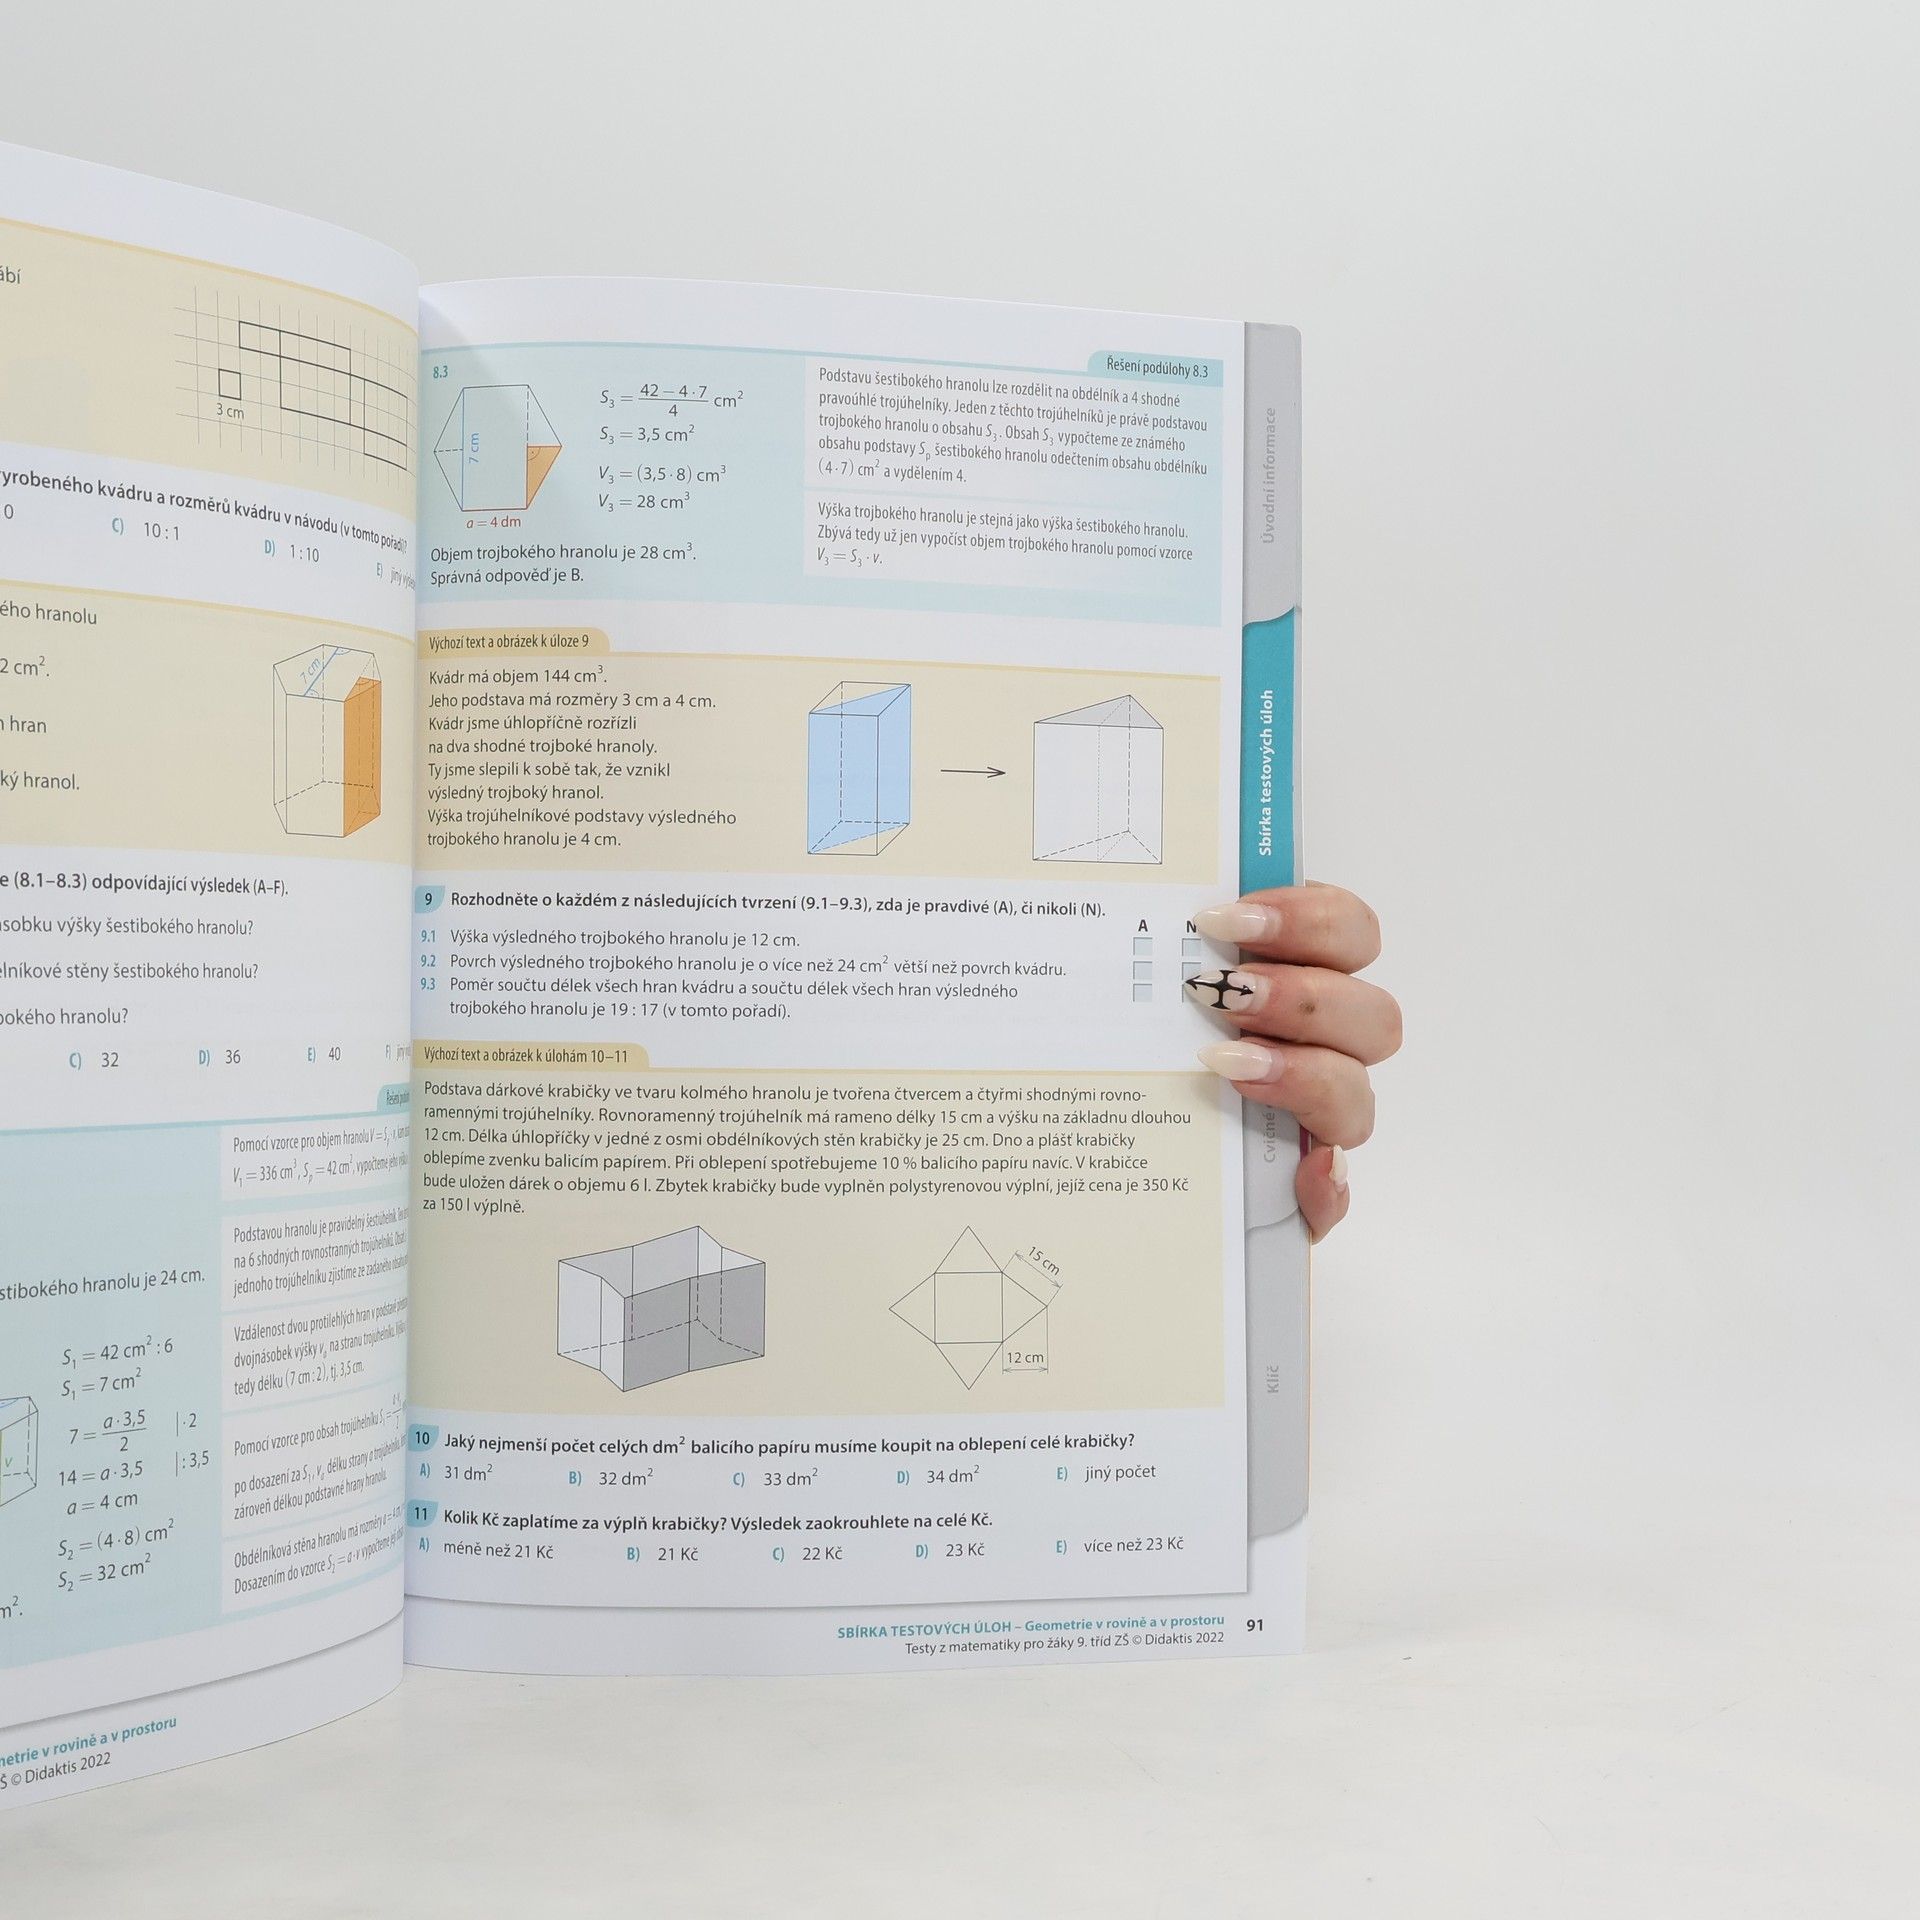 3 cm
yrobeného kvádru a rozměrů kvádru v návodu (v tomto pořadí)?
0
C) 10 : 1
D) 1 : 10
E) jiný
ého hranolu
2 cm².
hran
ký hranol.
7 cm
e (8.1–8.3) odpovídající výsledek (A–F).
sobku výšky šestibokého hranolu?
elníkové stěny šestibokého hranolu?
bokého hranolu?
C) 32
D) 36
E) 40
F)
Pomocí vzorce pro objem hranolu
V₁ = 336 cm³, Sₚ = 42 cm², vypočteme jeho
stibokého hranolu je 24 cm.
Podstavou hranolu je pravidelný šestiúhelník.
na 6 shodných rovnostranných trojúhelníků.
jednoho trojúhelníku zjistíme ze zadaného
Vzdálenost dvou protilehlých hran v podstavě
dvojnásobek výšky vₐ na stranu trojúhelníku.
tedy délku (7 cm : 2), tj. 3,5 cm.
S₁ = 42 cm² : 6
S₁ = 7 cm²
7 = a · 3,5 / 2 | · 2
14 = a · 3,5 | : 3,5
a = 4 cm
S₂ = (4 · 8) cm²
S₂ = 32 cm²
m².
v
Pomocí vzorce pro obsah trojúhelníku
po dosazení za S₁, vₐ délku strany a trojúhelníku,
zároveň délkou podstavné hrany hranolu.
Obdélníková stěna hranolu má rozměry
Dosazením do vzorce S₂ = a · v vypočteme její
metrie v rovině a v prostoru
Š © Didaktis 2022
8.3
7 cm
a = 4 dm
S₃ = (42 – 4 · 7) / 4 cm²
S₃ = 3,5 cm²
V₃ = (3,5 · 8) cm³
V₃ = 28 cm³
Objem trojbokého hranolu je 28 cm³.
Správná odpověď je B.
Řešení podúlohy 8.3
Podstavu šestibokého hranolu lze rozdělit na obdélník a 4 shodné
pravoúhlé trojúhelníky. Jeden z těchto trojúhelníků je právě podstavou
trojbokého hranolu o obsahu S₃. Obsah S₃ vypočteme ze známého
obsahu podstavy Sₚ šestibokého hranolu odečtením obsahu obdélníku
(4 · 7) cm² a vydělením 4.
Výška trojbokého hranolu je stejná jako výška šestibokého hranolu.
Zbývá tedy už jen vypočíst objem trojbokého hranolu pomocí vzorce
V₃ = S₃ · v.
Výchozí text a obrázek k úloze 9
Kvádr má objem 144 cm³.
Jeho podstava má rozměry 3 cm a 4 cm.
Kvádr jsme úhlopříčně rozřízli
na dva shodné trojboké hranoly.
Ty jsme slepili k sobě tak, že vznikl
výsledný trojboký hranol.
Výška trojúhelníkové podstavy výsledného
trojbokého hranolu je 4 cm.
9 Rozhodněte o každém z následujících tvrzení (9.1–9.3), zda je pravdivé (A), či nikoli (N).
A N
9.1 Výška výsledného trojbokého hranolu je 12 cm.
9.2 Povrch výsledného trojbokého hranolu je o více než 24 cm² větší než povrch kvádru.
9.3 Poměr součtu délek všech hran kvádru a součtu délek všech hran výsledného
trojbokého hranolu je 19 : 17 (v tomto pořadí).
Výchozí text a obrázek k úlohám 10–11
Podstava dárkové krabičky ve tvaru kolmého hranolu je tvořena čtvercem a čtyřmi shodnými rovno-
ramennými trojúhelníky. Rovnoramenný trojúhelník má rameno délky 15 cm a výšku na základnu dlouhou
12 cm. Délka úhlopříčky v jedné z osmi obdélníkových stěn krabičky je 25 cm. Dno a plášť krabičky
oblepíme zvenku balicím papírem. Při oblepení spotřebujeme 10 % balicího papíru navíc. V krabičce
bude uložen dárek o objemu 6 l. Zbytek krabičky bude vyplněn polystyrenovou výplní, jejíž cena je 350 Kč
za 150 l výplně.
15 cm
12 cm
10 Jaký nejmenší počet celých dm² balicího papíru musíme koupit na oblepení celé krabičky?
A) 31 dm² B) 32 dm² C) 33 dm² D) 34 dm² E) jiný počet
11 Kolik Kč zaplatíme za výplň krabičky? Výsledek zaokrouhlete na celé Kč.
A) méně než 21 Kč B) 21 Kč C) 22 Kč D) 23 Kč E) více než 23 Kč
SBÍRKA TESTOVÝCH ÚLOH – Geometrie v rovině a v prostoru
Testy z matematiky pro žáky 9. tříd ZŠ © Didaktis 2022
91
Úvodní informace
Sbírka testových úloh
Cvičné
Klíč